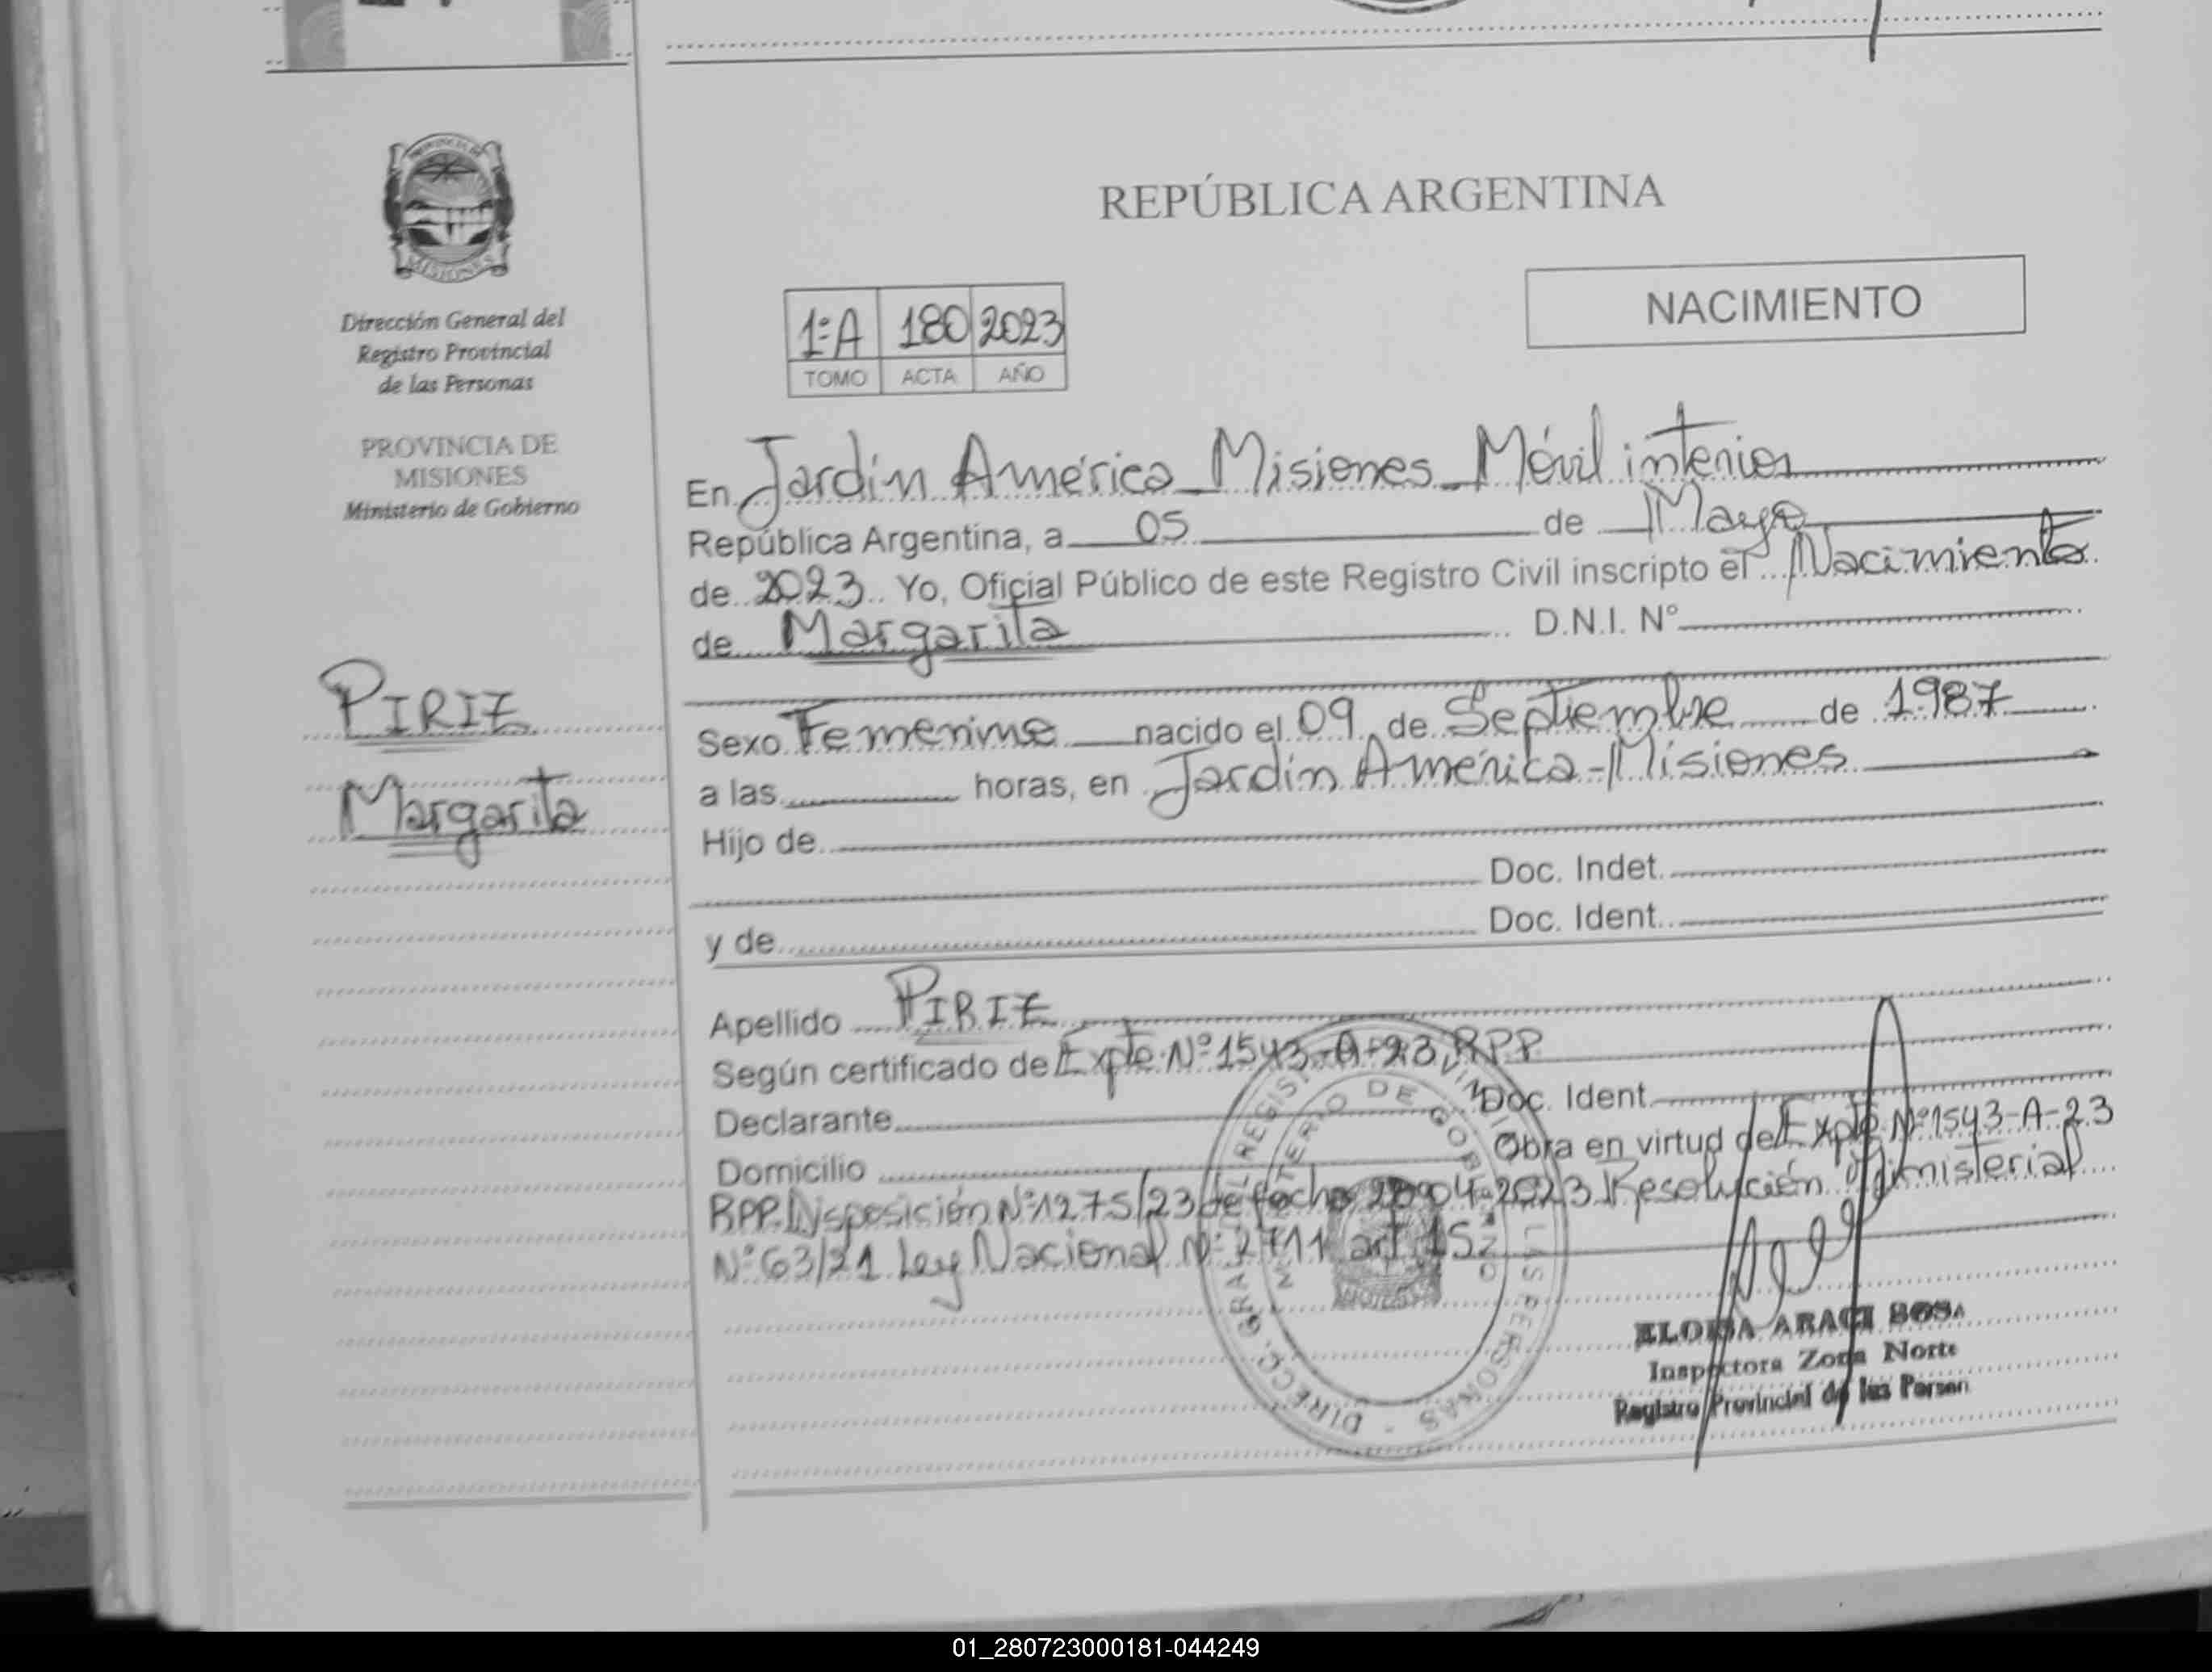 REPÚBLICA ARGENTINA
NACIMIENTO
1ºA 180 2023
TOMO ACTA AÑO
Dirección General del
Registro Provincial
de las Personas
PROVINCIA DE
MISIONES
Ministerio de Gobierno
PIRIZ
Margarita
En Jardín América Misiones Móvil interior
República Argentina, a 05 de Mayo
de 2023 Yo, Oficial Público de este Registro Civil inscripto el Nacimiento
de Margarita D.N.I. Nº
Sexo Femenino nacido el 09 de Septiembre de 1987
a las horas, en Jardín América - Misiones
Hijo de
Doc. Indet.
y de Doc. Ident.
Apellido PIRIZ
Según certificado de Expte. Nº 1543-A-23 RPP
Declarante Doc. Ident.
Domicilio Obra en virtud de Expte Nº 1543-A-23
RPP. Disposición Nº 1275/23 de fecha 04-2023 Resolución Ministerial
Nº 63/21 Ley Nacional Nº art 15
DIRECC. GRAL. REGIS PERSONAS
MINISTERIO DE GOBIERNO
ELOISA ARACI SOSA
Inspectora Zona Norte
Registro Provincial de las Person
01_280723000181-044249